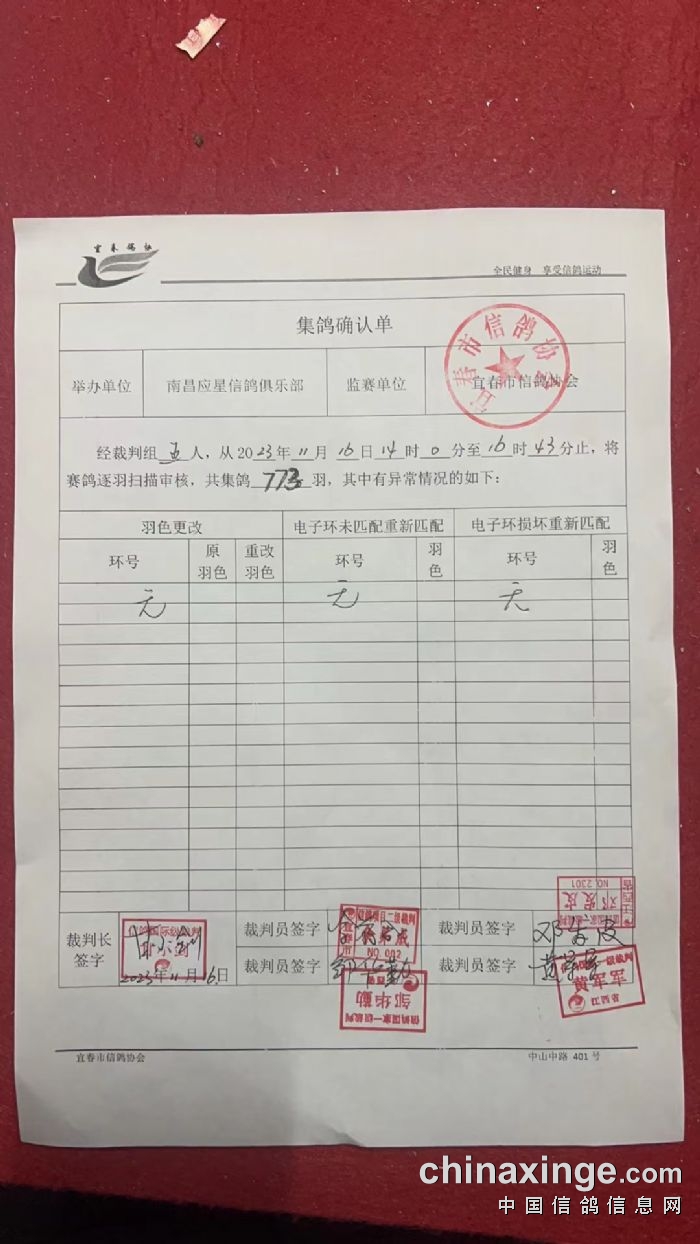 宜春鸽协
全民健身 享受信鸽运动
集鸽确认单
举办单位 南昌应星信鸽俱乐部 监赛单位 宜春市信鸽协会
宜春市信鸽协会
经裁判组 五 人，从2023年 11 月 16 日 14 时 0 分至 16 时 43 分止，将
赛鸽逐羽扫描审核，共集鸽 773 羽，其中有异常情况的如下：
羽色更改 电子环未匹配重新匹配 电子环损坏重新匹配
环号 原羽色 重改羽色 环号 羽色 环号 羽色
无 无 无
裁判长签字
2023年11月16日
裁判员签字
信鸽项目二级裁判
NO 002
裁判员签字 邓发皮
NO.2301
邓发皮
裁判员签字 邹华勤
邹华勤
信鸽国家一级裁判
裁判员签字 黄军军
一级裁判
黄军军
江西省
宜春市信鸽协会 中山中路 401 号
chinaxinge.com
中国信鸽信息网